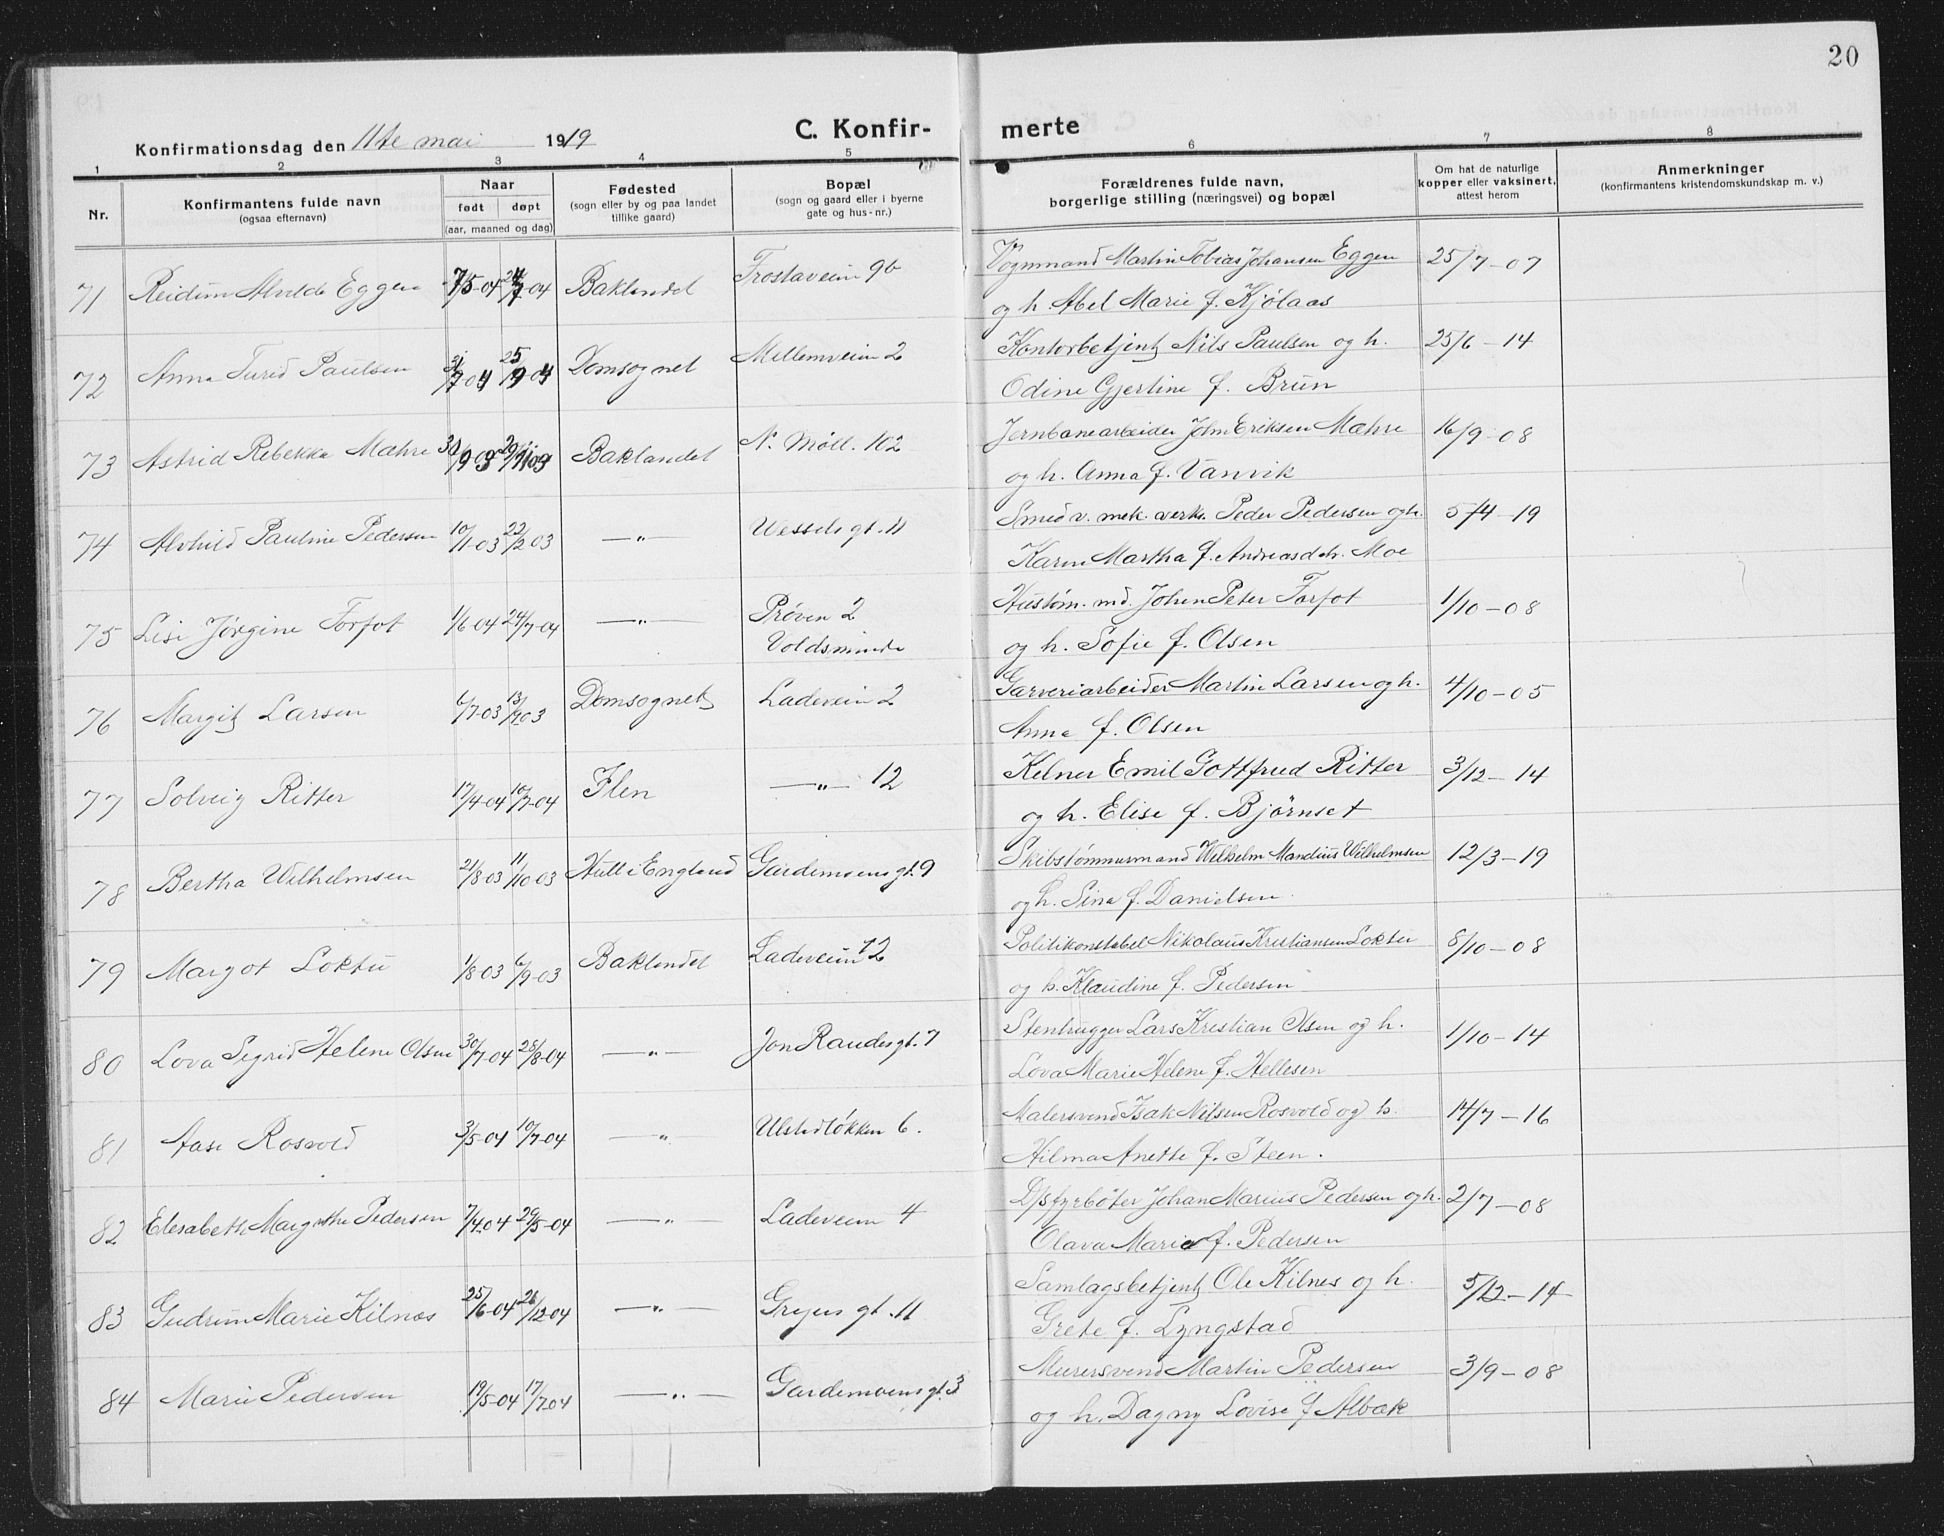 20
Konfirmationsdag den 11te mai 1919
C. Konfir- merte
1 2 3 4 5 6 7 8
Nr.
Konfirmantens fulde navn
(ogsaa efternavn)
Naar
født døpt
(aar, maaned og dag)
Fødested
(sogn eller by og paa landet
tillike gaard)
Bopæl
(sogn og gaard eller i byerne
gate og hus-nr.)
Forældrenes fulde navn,
borgerlige stilling (næringsvei) og bopæl
Om hat de naturlige
kopper eller vaksinert,
attest herom
Anmerkninger
(konfirmantens kristendomskundskap m. v.)
71 Reidun Alvilde Eggen 7/5-04 24/7-04 Baklandet Frostaveien 9b Vognmand Martin Tobias Johansen Eggen 25/7-07
og h. Abel Marie f. Kjølaas
72 Anna Turid Paulsen 7-04 25/9 04 Domsognet Mellemveien 2 Kontorbetjent Nils Paulsen og h. 25/6-14
Odine Gjertine f. Brun
73 Astrid Rebekka Mæhre 30/9-03 29/11 03 Baklandet N. Møll. 102 Jernbanearbeider John Eriksen Mæhre 16/9-08
og h. Anna f. Vanvik
74 Alvhild Pauline Pedersen 10/1-03 22/2 03 —„— Wessels gt. 11 Smed v. mek. verks. Peder Pedersen og h. 5/4-19
Karen Martha f. Andreasdtr. Moe
75 Lisi Jørgine Forfot 1/6-04 24/7-04 —„— Prøven 2
Voldsminde Johan Peter Forfot 1/10-08
og h. Sofie f. Olsen
76 Margit Larsen 6/7-03 13/9 03 Domsognet Ladeveien 2 Garveriarbeider Martin Larsen og h. 4/10-05
Anna f. Olsen
77 Solveig Ritter 17/4-04 10/7-04 Ilen —„— 12 Kelner Emil Gottfried Ritter 3/12-14
og h. Elise f. Bjørnset
78 Bertha Wilhelmsen 21/8-03 11/10-03 Hull i England Gardemoens gt. 9 Skibstømmermand Wilhelm Mandius Wilhelmsen 12/3-19
og h. Sina f. Danielsen
79 Margot Loktu 1/8-03 6/9-03 Baklandet Ladeveien 12 Politikonstabel Nikolaus Kristiansen Loktu 8/10-08
og h. Klaudine f. Pedersen
80 Lova Sigrid Helene Olsen 30/7-04 28/8-04 —„— Jon Raudes gt. 7 Stenhugger Lars Kristian Olsen og h. 1/10-14
Lova Marie Helene f. Hellesen
81 Aase Rosvold 3/5-04 10/7-04 —„— Ulstadløkken 6. Malersvend Isak Nilsen Rosvold og h. 14/7-16
Hilma Anette f. Steen.
82 Elisabeth Margrethe Pedersen 7/4 04 29/5-04 —„— Ladeveien 4 D/s fyrbøter Johan Marius Pedersen og h. 2/7-08
Olava Marie f. Pedersen
83 Gudrun Marie Kilnæs 25/6-04 26/12-04 —„— Gryens gt. 11 Samlagsbetjent Ole Kilnes og h. 5/12-14
Grete f. Lyngstad
84 Marie Pedersen 19/5-04 17/7 04 —„— Gardemoens gt. 3 Murersvend Martin Pedersen 3/9-08
og h. Dagny Lovise f. Albak